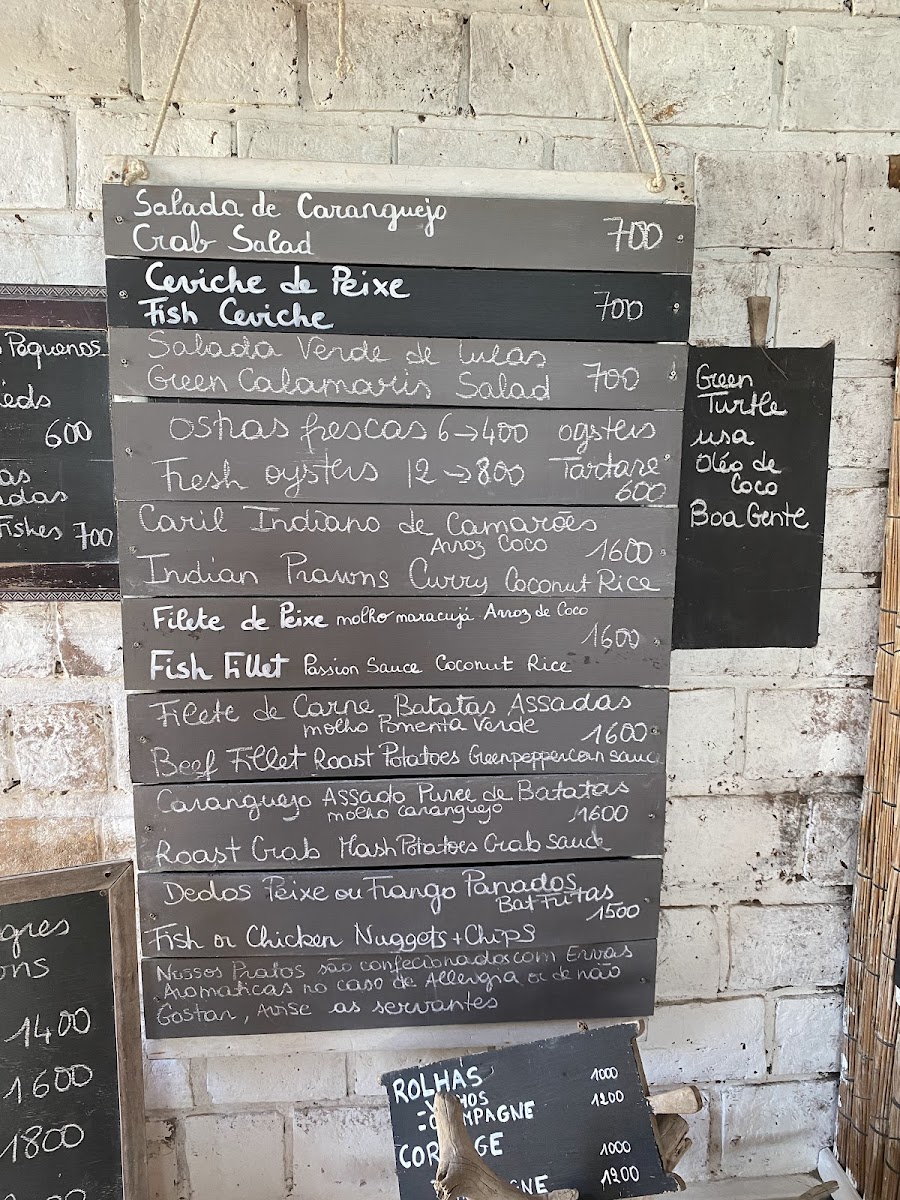 Salada de Caranguejo
Crab Salad 700
Ceviche de Peixe
Fish Ceviche 700
Salada Verde de Lulas
Green Calamaris Salad 700
Ostras frescas 6→400 oysters
Fresh oysters 12→800 Tartare
600
Caril Indiano de Camarões
Arroz Coco 1600
Indian Prawns Curry Coconut Rice
Filete de Peixe molho maracujá Arroz de Coco
1600
Fish Fillet Passion Sauce Coconut Rice
Filete de Carne Batatas Assadas
molho Pimenta Verde 1600
Beef Fillet Roast Potatoes Greenpeppercorn sauc
Caranguejo Assado Puree de Batatas
molho caranguejo 1600
Roast Crab MashPotatoes Crab sauce
Dedos Peixe ou Frango Panados
Bat Fritas
1500
Fish or Chicken Nuggets + Chips
Nossos Pratos são confecionados com Ervas
Aromaticas no caso de Allergia ou de não
Gostar, Avise as servantes
Green
Turtle
usa
Oléo de
Coco
Boa Gente
Pequenos
ieds
600
as
adas
Fishes 700
gres
ons
1400
1600
1800
ROLHAS 1000
1200
CHAMPAGNE
1000
1200